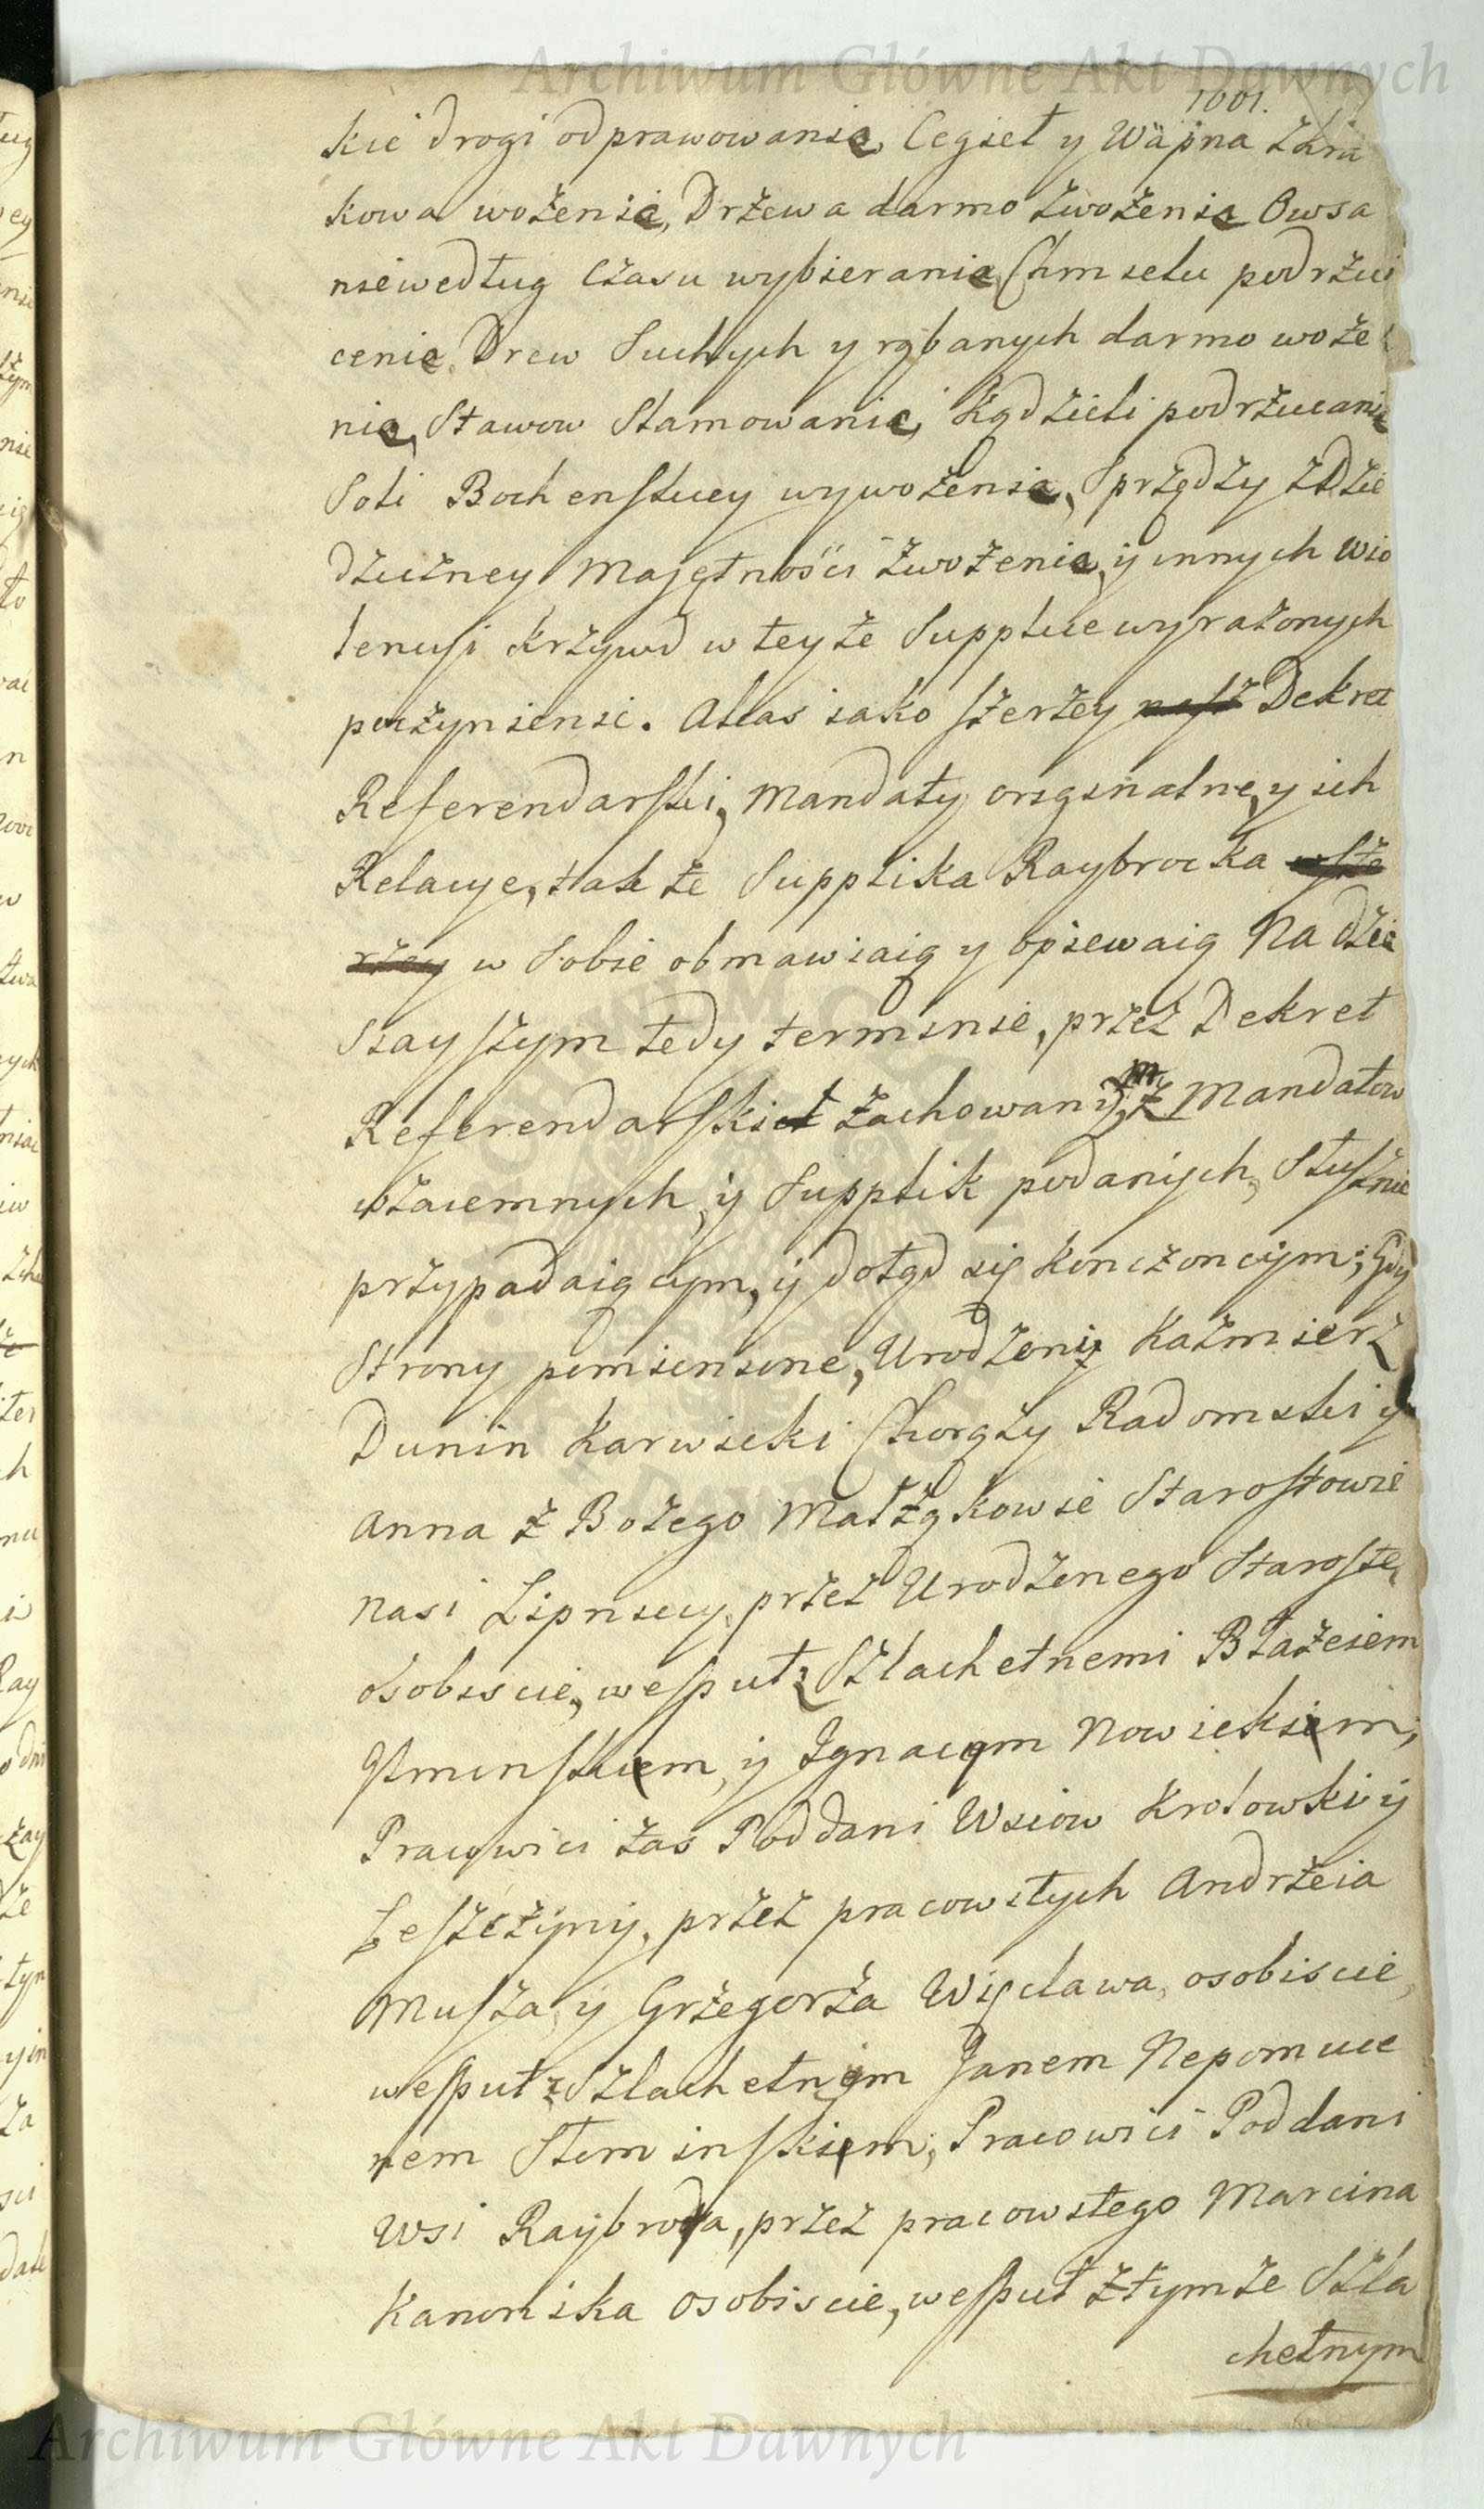 Archiwum Główne Akt Dawnych
1001.
kie drogi odprawowanie, Cegieł y Wapna z Kra
kowa wożenie, Drzewa darmo zwożenie Owsa
niewedług czasu wybieranie, Chmielu podrzu
cenie, Drew Suchych y rąbanych darmo woże
nie, Stawow Stamowanie, Kądzieli podrzucanie
Soli Bochenskiey wywożenie, Sprzędzy z Dzie
dziczney Majętności zwożenie, y innych wio
lencyi krzywd w teyże Supplice wyrażonych
poczynienie. Aktas iako szerzey Dekret
Referendarski, Mandaty orginalne, y ich
Relacye, także Supplika Raybrocka
w Sobie obmawiaią y opiewaią Na dzi
Siayszym tedy terminie, przez Dekret
Referendarski zachowanym, z Mandatow
wzaiemnych, y Supplik podanych, Słusznie
przypadaiącym, y dotąd się konczoncym; Gdy
Strony pomienione, Urodzeni Kazmierz
Dunin Karwicki Chorąży Radomski y
Anna z Bożego Małżąkowie Starostowie
nasi Lipniccy, przez Urodzonego Starostę,
osobiscie, wespuł z Szlachetnemi Błażeiem
y Ignacym Nowickim;
Pracowici zas Poddani Wsiow Krolowki y
Leszczyny, przez pracowitych Andrzeia
Musza, y Grzegorza Więcława, osobiscie,
wespuł z Szlachetnym Janem Nepomuce
nem Słominskim; Pracowici Poddani
Wsi Raybroda, przez pracowitego Marcina
Kanonika osobiscie, wespuł z tymże Szla
chetnym
Archiwum Główne Akt Dawnych